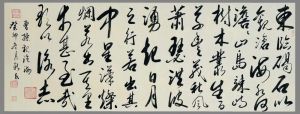 東臨碣石以
觀滄海水何
澹澹山島竦峙
樹木叢生百
草豐茂秋風
蕭瑟洪波
湧起日月
之行若出其
中星漢燦
爛若出其裏
幸甚至哉
歌以詠志
曹操觀滄海
癸卯